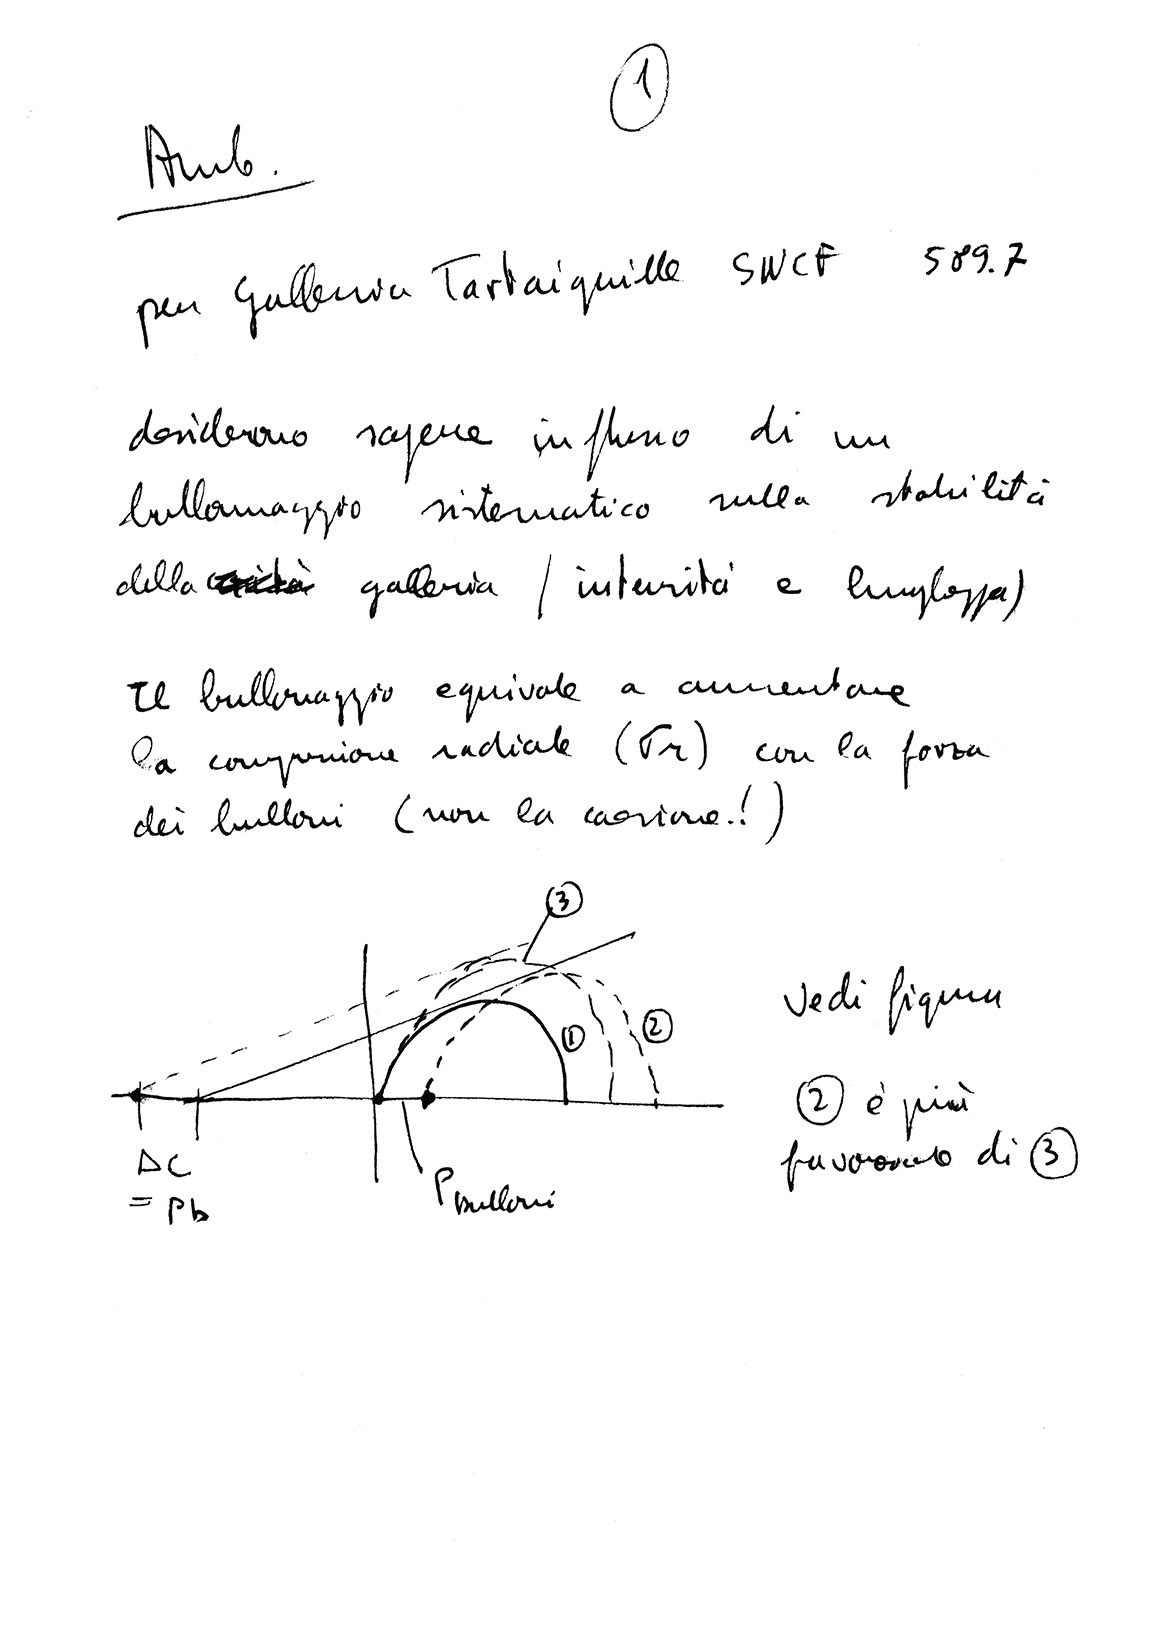 1
Amb.
per Galleria Tartaiguille SWCF 589.7
desiderano sapere influsso di un
bullonaggio sistematico sulla stabilità
della galleria (intensità e lunghezza)
Il bullonaggio equivale a aumentare
la compressione radiale (σr) con la forza
dei bulloni (non la coesione!)
3
1
2
Vedi figura
2 è più
favorevole di 3
ΔC
= Pb
P Bulloni